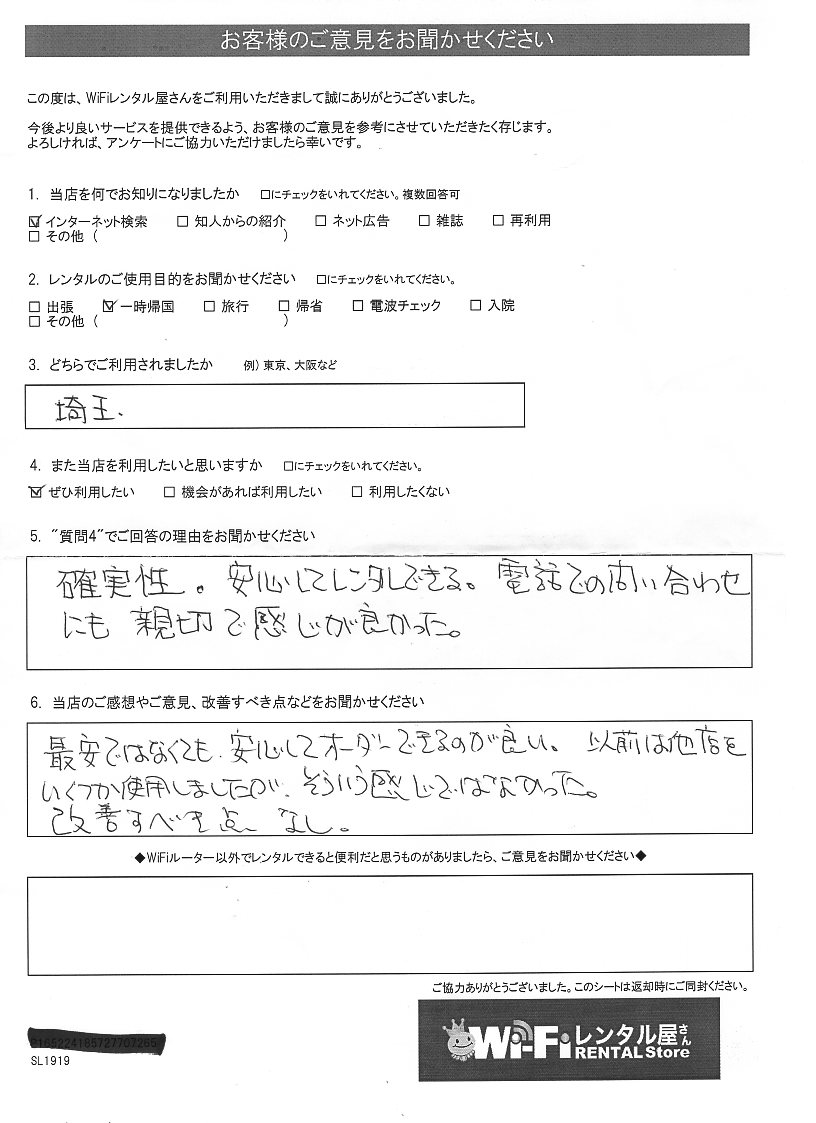 お客様のご意見をお聞かせください
この度は、WiFiレンタル屋さんをご利用いただきまして誠にありがとうございました。
今後より良いサービスを提供できるよう、お客様のご意見を参考にさせていただきたく存じます。
よろしければ、アンケートにご協力いただけましたら幸いです。
1. 当店を何でお知りになりましたか □にチェックをいれてください。複数回答可
☑インターネット検索 □ 知人からの紹介 □ ネット広告 □ 雑誌 □ 再利用
□ その他 ( )
2. レンタルのご使用目的をお聞かせください □にチェックをいれてください。
□ 出張 ☑一時帰国 □ 旅行 □ 帰省 □ 電波チェック □ 入院
□ その他 ( )
3. どちらでご利用されましたか 例) 東京、大阪など
埼玉.
4. また当店を利用したいと思いますか □にチェックをいれてください。
☑ぜひ利用したい □ 機会があれば利用したい □ 利用したくない
5. "質問4"でご回答の理由をお聞かせください
確実性。安心してレンタルできる。電話での問い合わせ
にも 親切で感じが良かった。
6. 当店のご感想やご意見、改善すべき点などをお聞かせください
最安ではなくても、安心してオーダーできるのが良い。以前は他店を
いくつか使用しましたが、そういう感じではなかった。
改善すべき点、なし。
◆WiFiルーター以外でレンタルできると便利だと思うものがありましたら、ご意見をお聞かせください◆
ご協力ありがとうございました。このシートは返却時にご同封ください。
SL1919
Wi-Fiレンタル屋さん
RENTAL Store